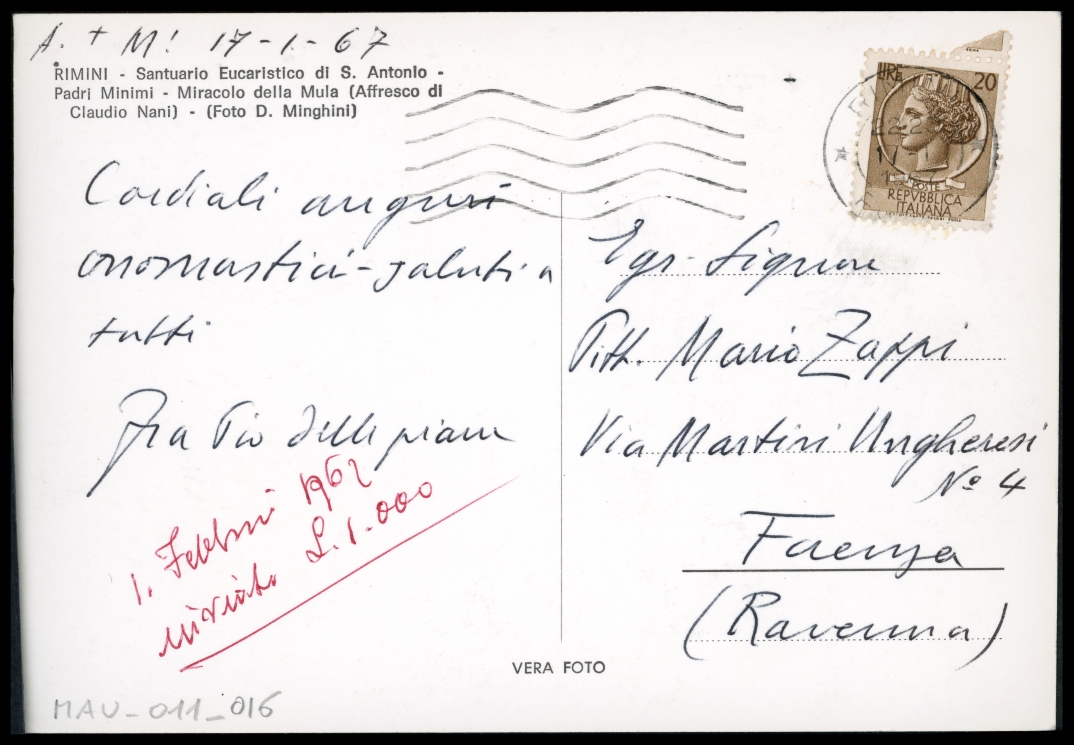 A. + M! 17-1-67
RIMINI - Santuario Eucaristico di S. Antonio -
Padri Minimi - Miracolo della Mula (Affresco di
Claudio Nani) - (Foto D. Minghini)
Cordiali auguri
onomastici - saluti a
tutti
Fra Pio Dellepiane
1. Febbrai 1967
inviato L. 1.000
LIRE 20
POSTE
REPVBBLICA
ITALIANA
Egr. Signore
Pitt. Mario Zappi
Via Martiri Ungheresi
N° 4
Faenza
(Ravenna)
VERA FOTO
MAU_011_016